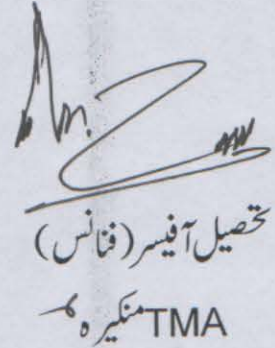 تحصیل آفیسر (فنانس)
TMA منکیرہ